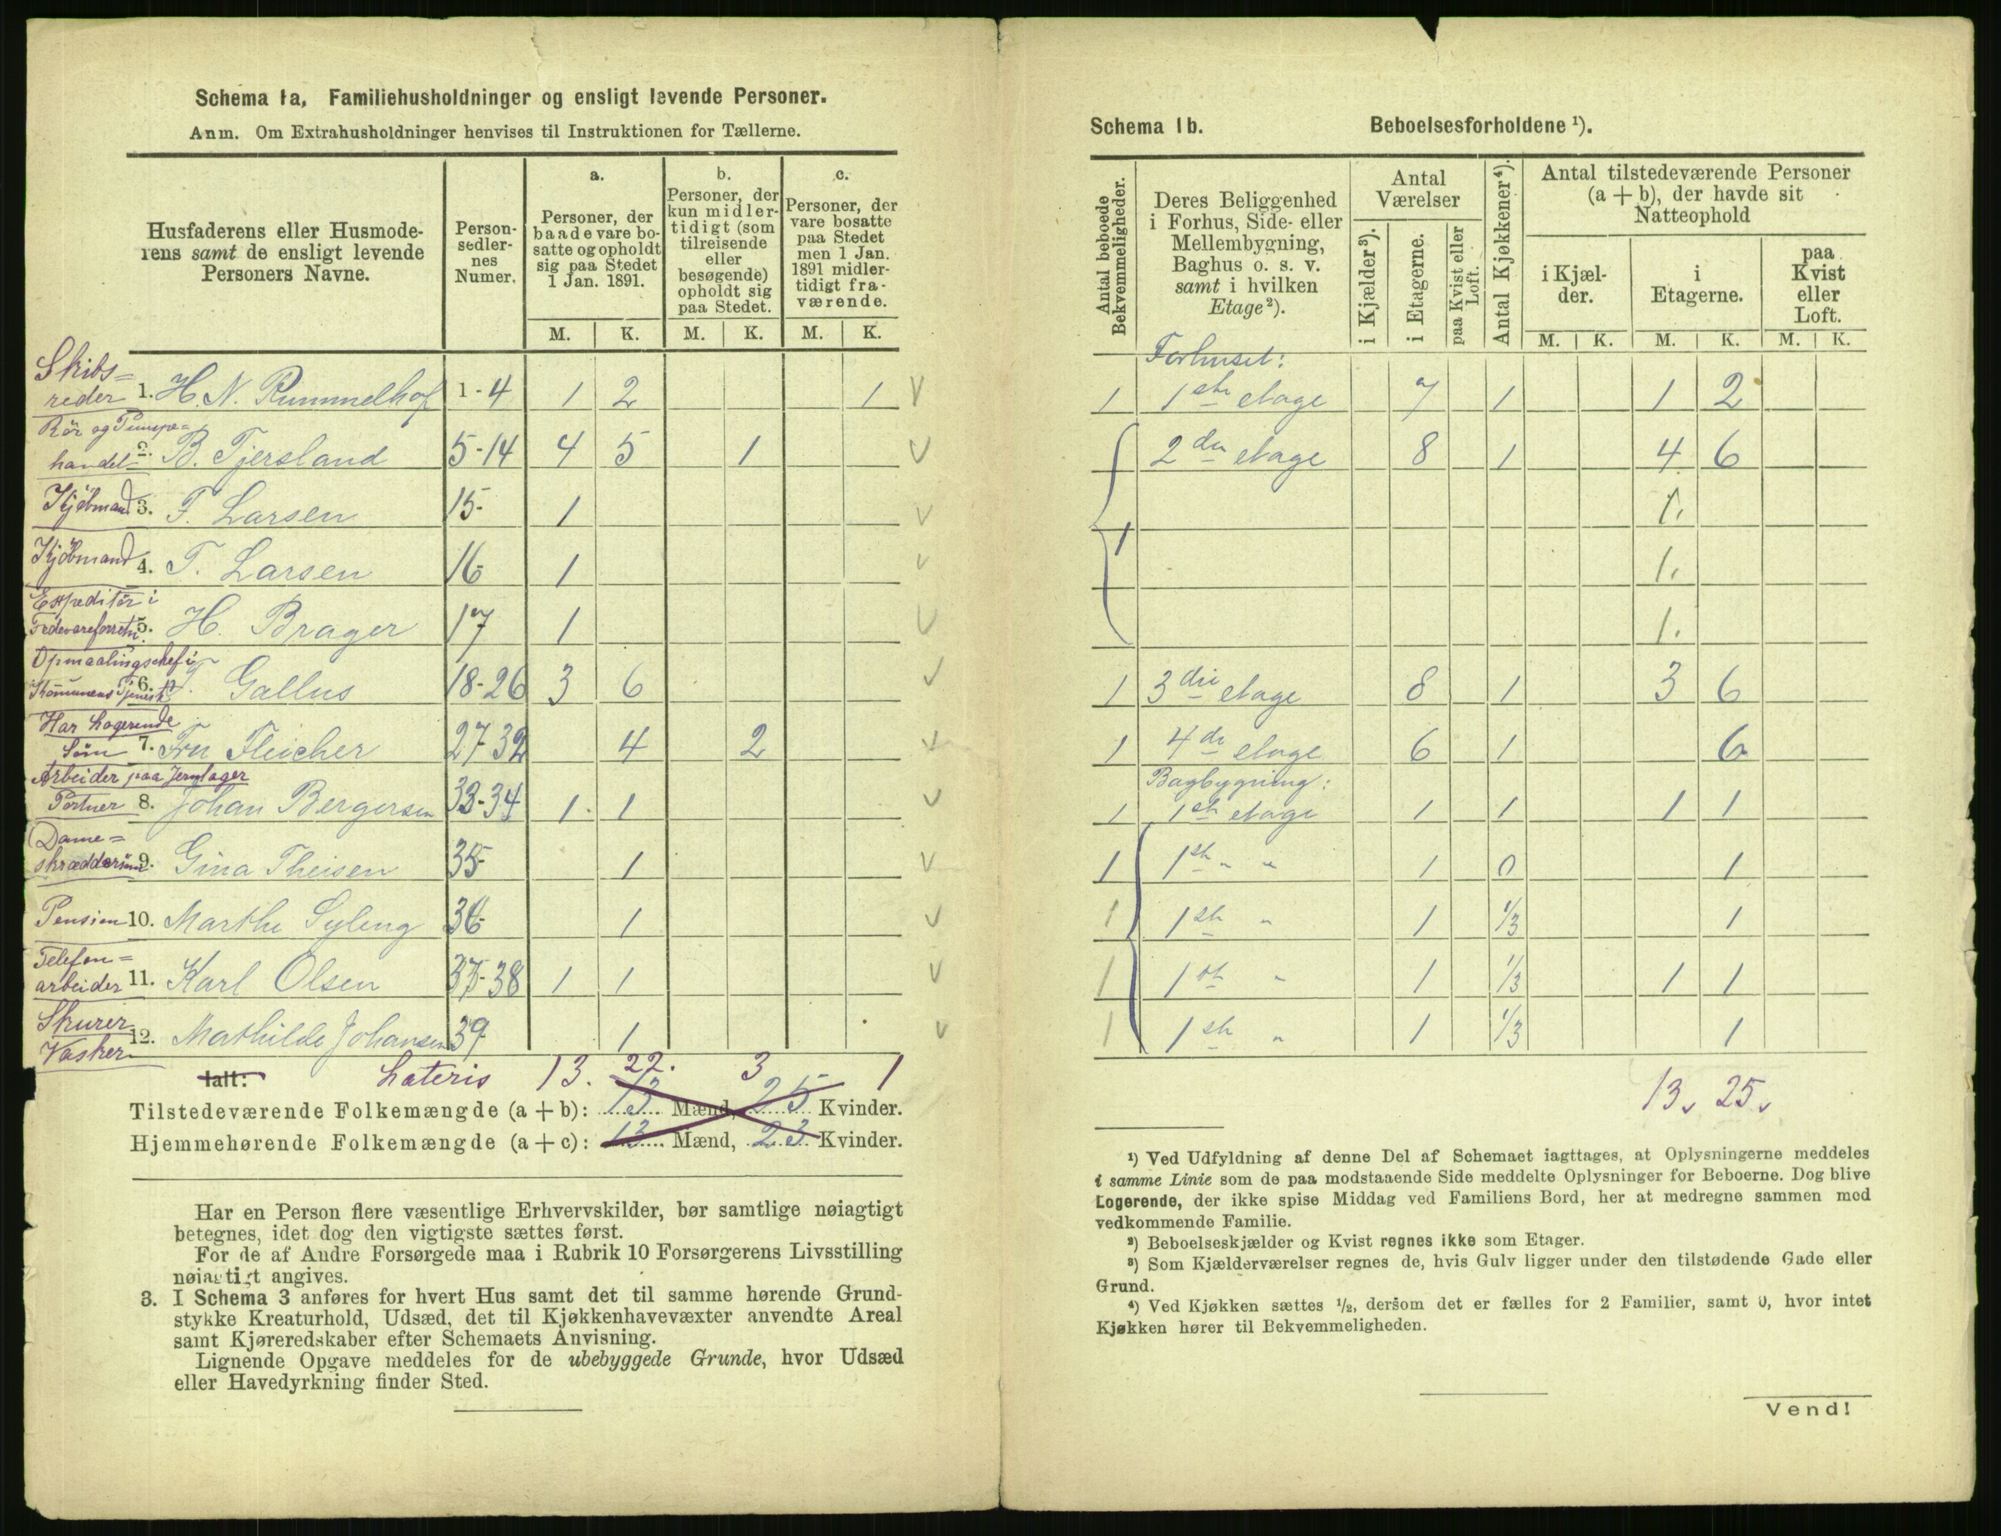 Schema 1a, Familiehusholdninger og ensligt levende Personer.
Anm. Om Extrahusholdninger henvises til Instruktionen for Tællerne.
Husfaderens eller Husmode-
rens samt de ensligt levende
Personers Navne.
Person-
sedler-
nes
Numer.
a.
Personer, der
baade vare bo-
satte og opholdt
sig paa Stedet
1 Jan. 1891.
b.
Personer, der
kun midler-
tidigt (som
tilreisende
eller
besøgende)
opholdt sig
paa Stedet.
c.
Personer, der
vare bosatte
paa Stedet
men 1 Jan.
1891 midler-
tidigt fra-
værende.
M. K. M. K. M. K.
Skibs=
reder 1. H. N. Rummelhof 1-4 1 2 1 V
Rör og Pumpe=
handel 2. B. Tjersland 5-14 4 5 1 V
Kjöbmand 3. F. Larsen 15- 1 V
Kjöbmand 4. T. Larsen 16- 1 V
Expeditör i
Fedevareforretn. 5. H. Brager 17 1 V
Opmaalingschef i
Kommunens Tjenest 6. T. Gallus 18-26 3 6 V
Har Logerende
Sön 7. Fru Fleicher 27-32 4 2 V
Arbeider paa Jernlager
Portner 8. Johan Bergersen 33-34 1 1 V
Dame=
skrædderinne 9. Gina Theisen 35- 1 V
Pension 10. Marthe Syleng 36- 1 V
Telefon=
arbeider 11. Karl Olsen 37-38 1 1 V
Skurer
Vasker 12. Mathilde Johansen 39 1 V
Ialt: Lateris 13. 22. 3 1
Tilstedeværende Folkemængde (a + b): 13 Mænd, 25 Kvinder.
Hjemmehørende Folkemængde (a + c): 13 Mænd, 23 Kvinder.
Har en Person flere væsentlige Erhvervskilder, bør samtlige nøiagtigt
betegnes, idet dog den vigtigste sættes først.
For de af Andre Forsørgede maa i Rubrik 10 Forsørgerens Livsstilling
nøiagtigt angives.
3. I Schema 3 anføres for hvert Hus samt det til samme hørende Grund-
stykke Kreaturhold, Udsæd, det til Kjøkkenhavevæxter anvendte Areal
samt Kjøreredskaber efter Schemaets Anvisning.
Lignende Opgave meddeles for de ubebyggede Grunde, hvor Udsæd
eller Havedyrkning finder Sted.
Schema 1b. Beboelsesforholdene ¹).
Antal beboede
Bekvemmeligheder.
Deres Beliggenhed
i Forhus, Side- eller
Mellembygning,
Baghus o. s. v.
samt i hvilken
Etage²).
Antal
Værelser
i Kjælder³).
i Etagerne.
paa Kvist eller
Loft.
Antal Kjøkkener⁴).
Antal tilstedeværende Personer
(a + b), der havde sit
Natteophold
i Kjæl-
der.
i
Etagerne.
paa
Kvist
eller
Loft.
M. K. M. K. M. K.
Forhuset:
1 1ste etage 7 1 1 2
2den etage 8 1 4 6
1.
1
1.
1.
1 3die etage 8 1 3 6
1 4de etage 6 1 6
Bagbygning:
1 1ste etage 1 1 1 1
1 1ste " " 1 0 1
1 1ste " 1 1/3 1
1 1ste " 1 1/3 1 1
1 1ste " 1 1/3 1
13. 25.
¹) Ved Udfyldning af denne Del af Schemaet iagttages, at Oplysningerne meddeles
i samme Linie som de paa modstaaende Side meddelte Oplysninger for Beboerne. Dog blive
Logerende, der ikke spise Middag ved Familiens Bord, her at medregne sammen med
vedkommende Familie.
²) Beboelseskjælder og Kvist regnes ikke som Etager.
³) Som Kjælderværelser regnes de, hvis Gulv ligger under den tilstødende Gade eller
Grund.
⁴) Ved Kjøkken sættes ¹/₂, dersom det er fælles for 2 Familier, samt 0, hvor intet
Kjøkken hører til Bekvemmeligheden.
Vend!